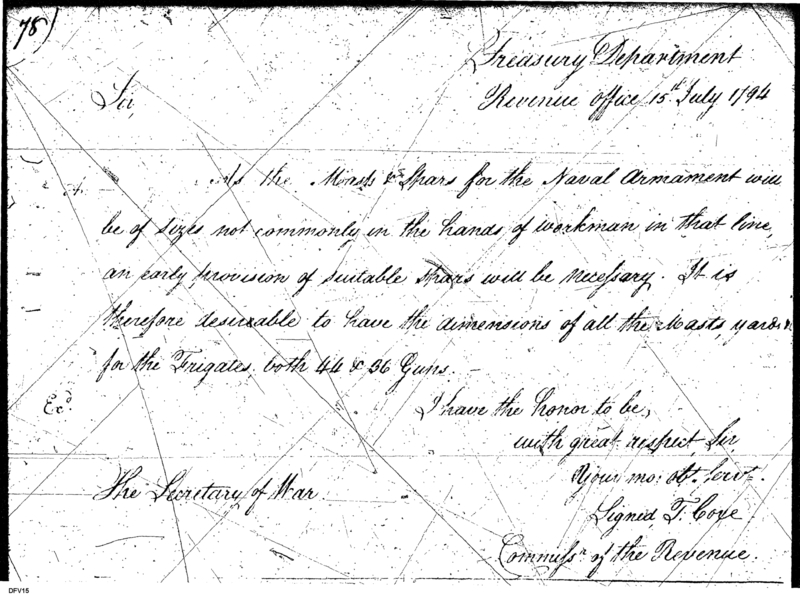 78)
Treasury Department
Revenue office 15th July 1794
Sir,
As the Masts & Spars for the Naval Armament will
be of sizes not commonly in the hands of workman in that line,
an early provision of suitable spars will be necessary. It is
therefore desireable to have the dimensions of all the Masts, yards &
for the Frigates, both 44 & 36 Guns.
Exd.
I have the honor to be,
with great respect, Sir,
Your mo: obt. Servt.
The Secretary of War.
Signed, T. Coxe.
Commissr. of the Revenue.
DFV15